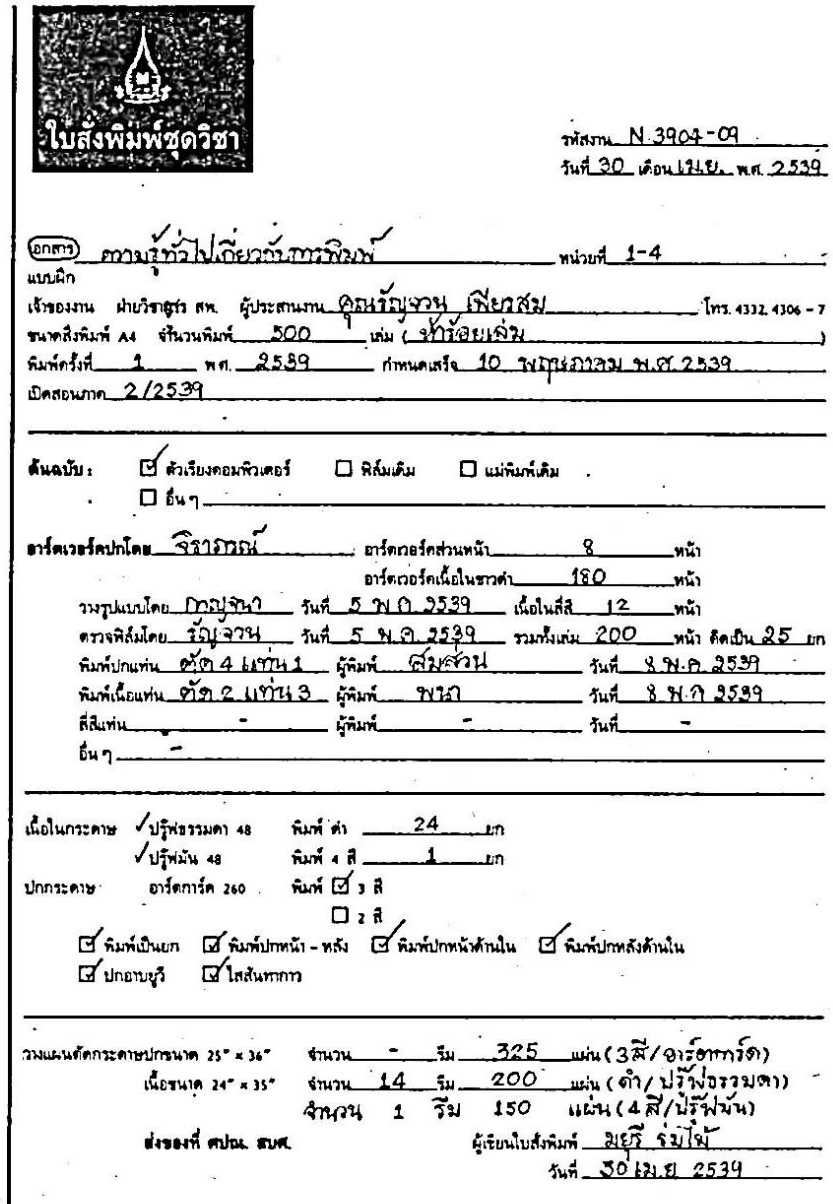 ใบสั่งพิมพ์ชุดวิชา
รหัสงาน N.3904-09
วันที่ 30 เดือน เม.ย. พ.ศ. 2539
เอกสาร ความรู้ทั่วไปเกี่ยวกับการพิมพ์ หน่วยที่ 1-4
แบบฝึก
เจ้าของงาน ฝ่ายวิชาชีพ สพ. ผู้ประสานงาน คุณรัญจวน เพียวสม โทร. 4332, 4306 - 7
ขนาดสิ่งพิมพ์ A4 จำนวนพิมพ์ 500 เล่ม (ห้าร้อยเล่ม)
พิมพ์ครั้งที่ 1 พศ. 2539 กำหนดเสร็จ 10 พฤษภาคม พ.ศ. 2539
เปิดสอนภาค 2/2539
ต้นฉบับ : ☑ ตัวเรียงคอมพิวเตอร์ ☐ ฟิล์มเดิม ☐ แม่พิมพ์เดิม
☐ อื่น ๆ
อาร์ตเวอร์คปกโดย จิราภรณ์ อาร์ตเวอร์คส่วนหน้า 8 หน้า
อาร์ตเวอร์คเนื้อในขาวดำ 180 หน้า
วางรูปแบบโดย กาญจนา วันที่ 5 พ.ค. 2539 เนื้อในสี่สี 12 หน้า
ตรวจฟิล์มโดย รัญจวน วันที่ 5 พ.ค. 2539 รวมทั้งเล่ม 200 หน้า คิดเป็น 25 ยก
พิมพ์ปกแท่น ตัด 4 แท่น 1 ผู้พิมพ์ สมส่วน วันที่ 8 พ.ค. 2539
พิมพ์เนื้อแท่น ตัด 2 แท่น 3 ผู้พิมพ์ พนา วันที่ 8 พ.ค 2539
สี่สีแท่น - ผู้พิมพ์ - วันที่ -
อื่น ๆ -
เนื้อในกระดาษ ✓ปรู๊ฟธรรมดา 48 พิมพ์ ดำ 24 ยก
✓ปรู๊ฟมัน 48 พิมพ์ 4 สี 1 ยก
ปกกระดาษ อาร์ตการ์ด 260 พิมพ์ ☑ 3 สี
☐ 2 สี
☑ พิมพ์เป็นยก ☑ พิมพ์ปกหน้า - หลัง ☑ พิมพ์ปกหน้าด้านใน ☑ พิมพ์ปกหลังด้านใน
☑ ปกอาบยูวี ☑ ไสสันทากาว
วางแผนตัดกระดาษปกขนาด 25" × 36" จำนวน - รีม 325 แผ่น (3สี/อาร์ตการ์ด)
เนื้อขนาด 24" × 35" จำนวน 14 รีม 200 แผ่น (ดำ/ปรู๊ฟธรรมดา)
จำนวน 1 รีม 150 แผ่น (4 สี/ปรู๊ฟมัน)
ส่งของที่ ศปณ. สบศ. ผู้เขียนใบสั่งพิมพ์ มยุรี ร่มไม้
วันที่ 30 เม.ย 2539